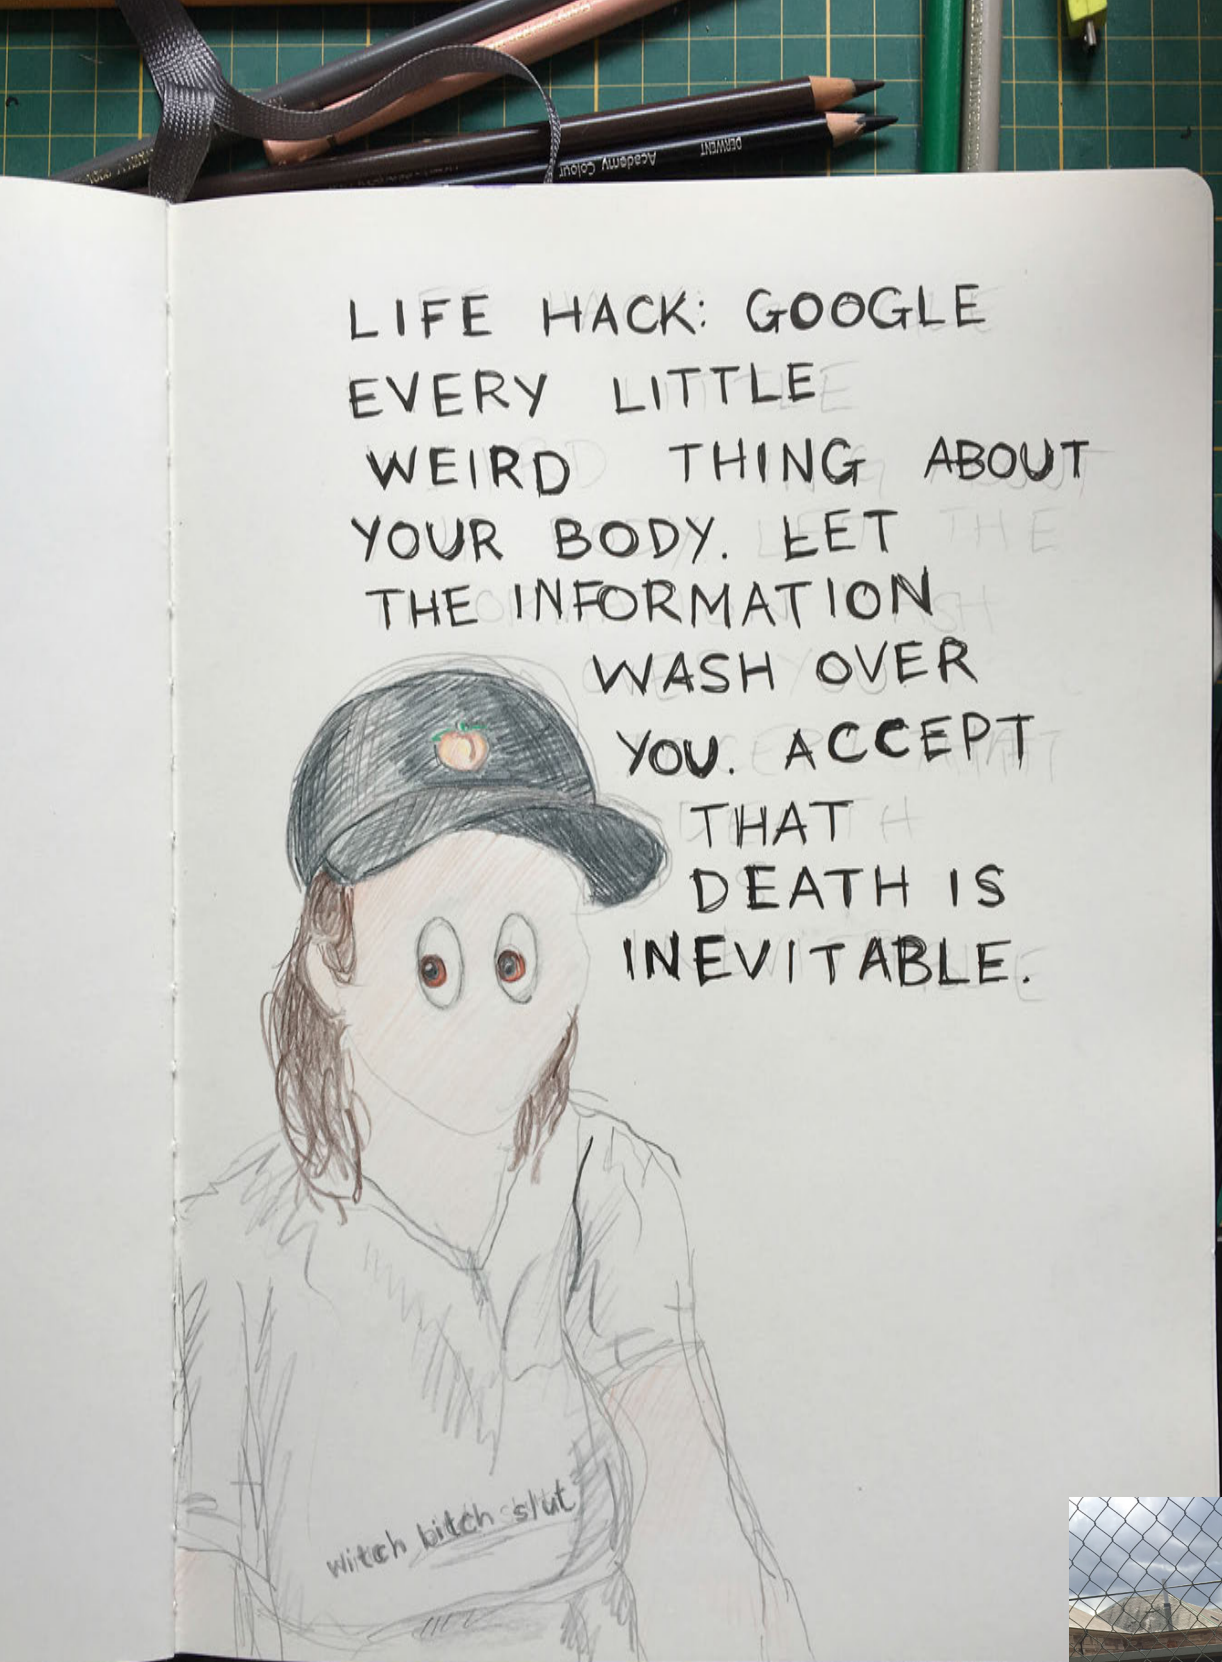 DERWENT Academy Colour
LIFE HACK: GOOGLE
EVERY LITTLE
WEIRD THING ABOUT
YOUR BODY. LET
THE INFORMATION
WASH OVER
YOU. ACCEPT
THAT
DEATH IS
INEVITABLE.
witch bitch slut